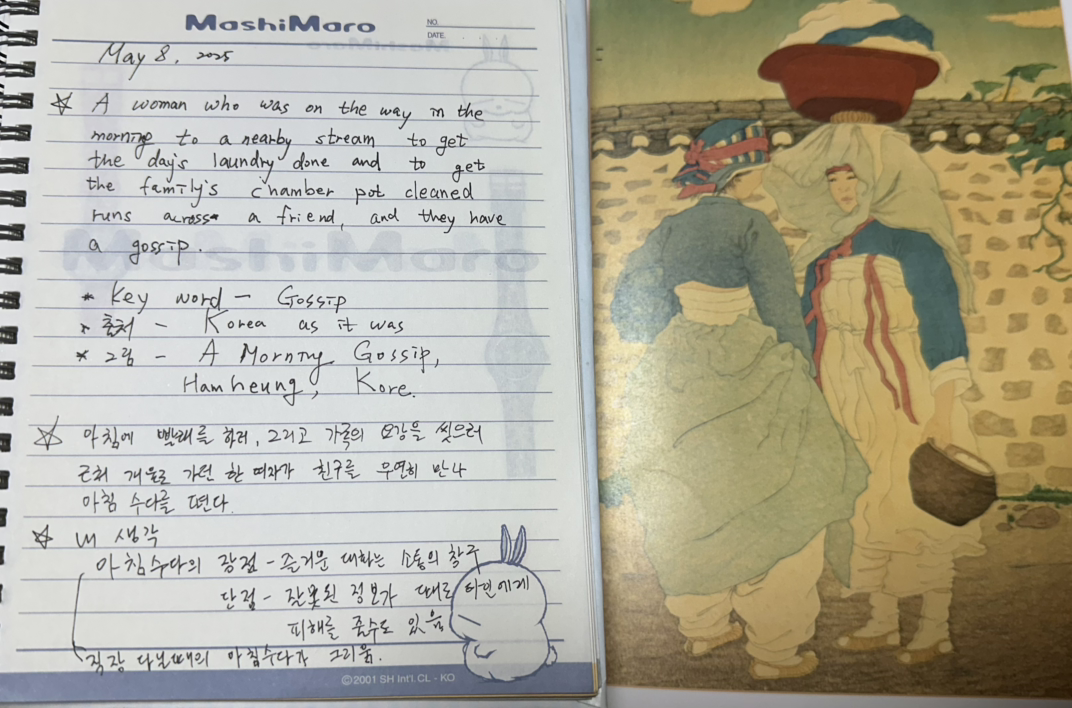 MashiMaro
NO.
DATE.
May 8, 2025
☆ A woman who was on the way in the
morning to a nearby stream to get
the day's laundry done and to get
the family's chamber pot cleaned
runs across a friend, and they have
a gossip.
* Key word - Gossip
* 출처 - Korea as it was
* 그림 - A Morning Gossip,
Hamheung, Kore.
☆ 아침에 빨래를 하러, 그리고 가족의 요강을 씻으러
근처 개울로 가던 한 여자가 친구를 우연히 만나
아침 수다를 떤다.
☆ 내 생각
아침수다의 장점 - 즐거운 대화는 소통의 창구
단점 - 잘못된 정보가 때로 타인에게
피해를 줄수도 있음
직장 다닐때의 아침수다가 그리움.
©2001 SH Int'l. CL - KO